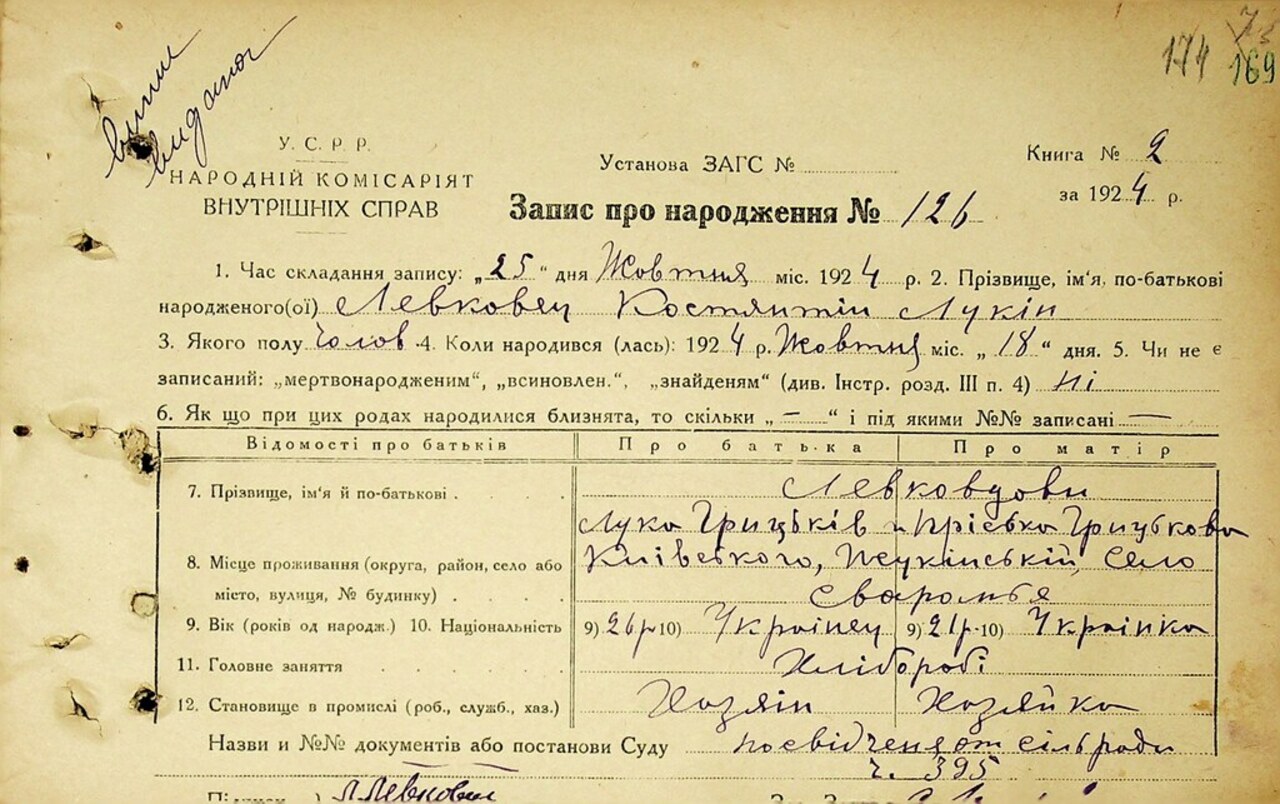 174 169
випис
видано
У. С. Р. Р.
НАРОДНІЙ КОМІСАРІЯТ
ВНУТРІШНІХ СПРАВ
Установа ЗАГС №
Книга № 2
за 1924 р.
Запис про народження № 126
1. Час складання запису: „25“ дня Жовтня міс. 1924 р. 2. Прізвище, ім'я, по-батькові
народженого(ої) Левковец Костянтин Лукін
3. Якого полу Чолов. 4. Коли народився (лась): 1924 р. Жовтня міс. „18“ дня. 5. Чи не є
записаний: „мертвонародженим“, „всиновлен.“, „знайденям“ (див. Інстр. розд. III п. 4) ні
6. Як що при цих родах народилися близнята, то скільки „—“ і під якими №№ записані —
Відомості про батьків Про батька Про матір
7. Прізвище, ім'я й по-батькові Левковцови
Лука Грицьків и Пріська Грицькова
8. Місце проживання (округа, район, село або Київського, Жукінській, село
місто, вулиця, № будинку) Сваромья
9. Вік (років од народж.) 10. Національність 9) 26 р 10) Українец 9) 21 р. 10) Українка
11. Головне заняття Хлібороби
12. Становище в промислі (роб., служб., хаз.) Хозяїн Хозяйка
Назви и №№ документів або постанови Суду посвідченя от сільради
ч. 395